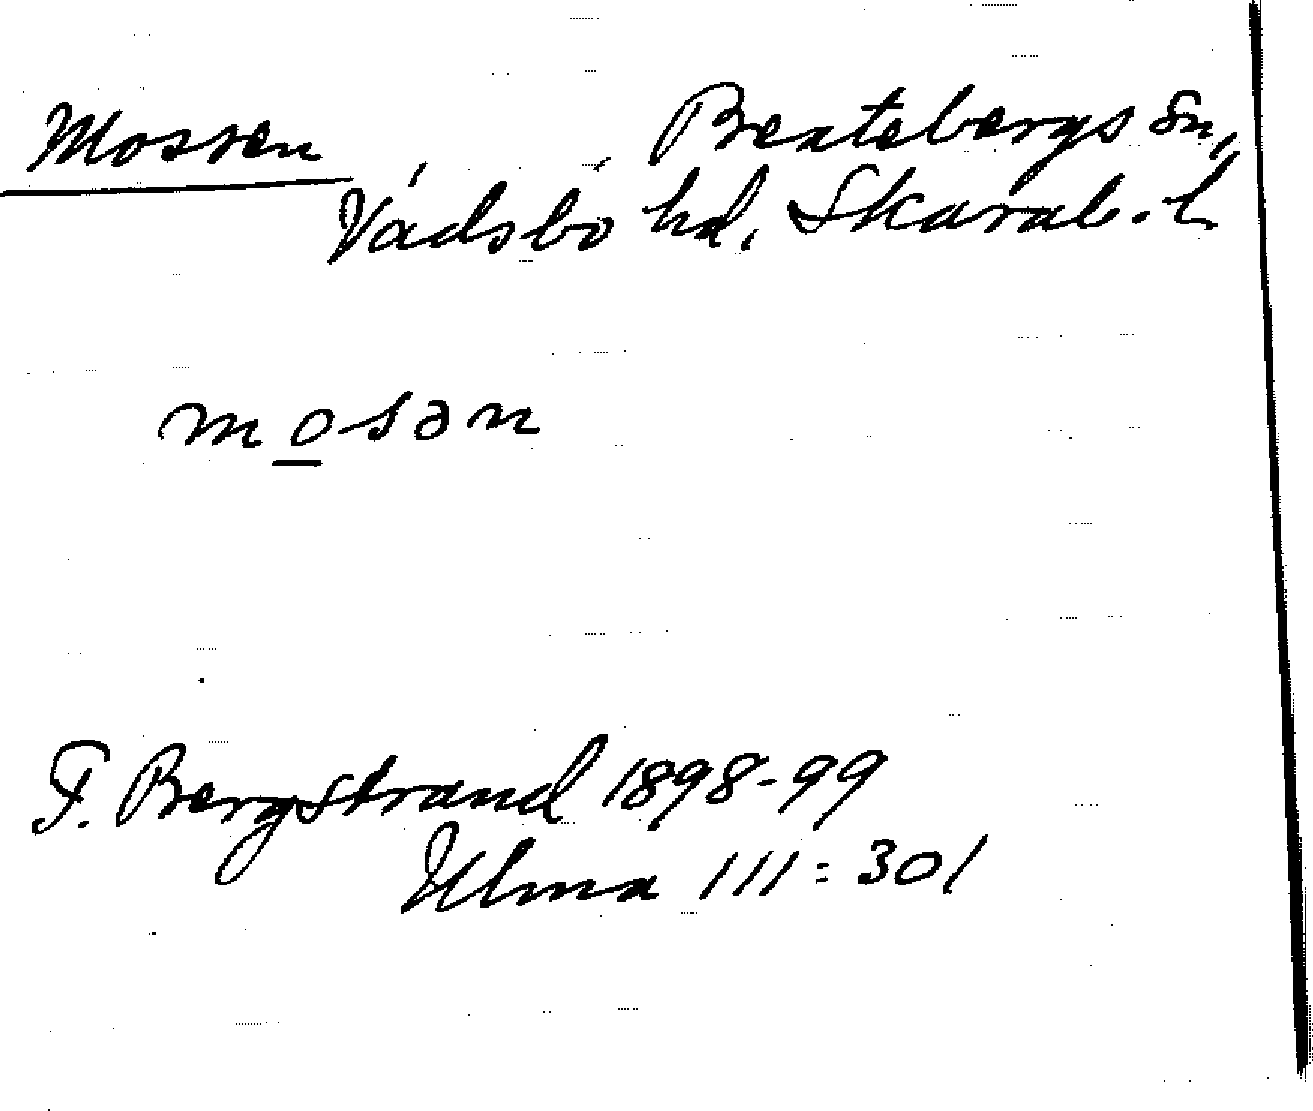 Mossen Bentebergs Sn,
Vadsbo hd, Skarab. l.
mosən
F. Bergstrand 1898-99
Ulma 111:301